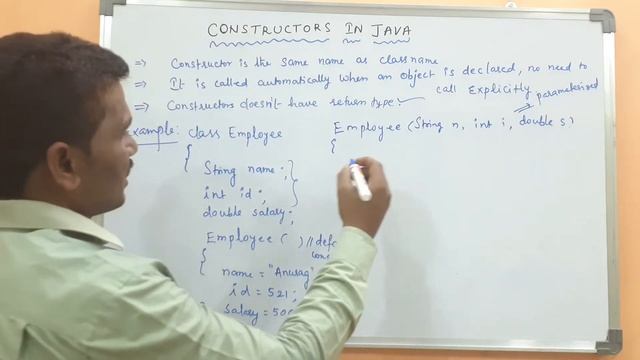 CONSTRUCTORS IN JAVA
⇒ Constructor is the same name as classname
⇒ It is called automatically when an object is declared, no need to
call Explicitly
⇒ Constructors doesn't have return type.
⇒ parameterized
Example: class Employee
{
String name;
int id;
double salary;
Employee ( ) //
{
name = "Anurag"
id = 521;
salary =
Employee (String n, int i, double s)
{